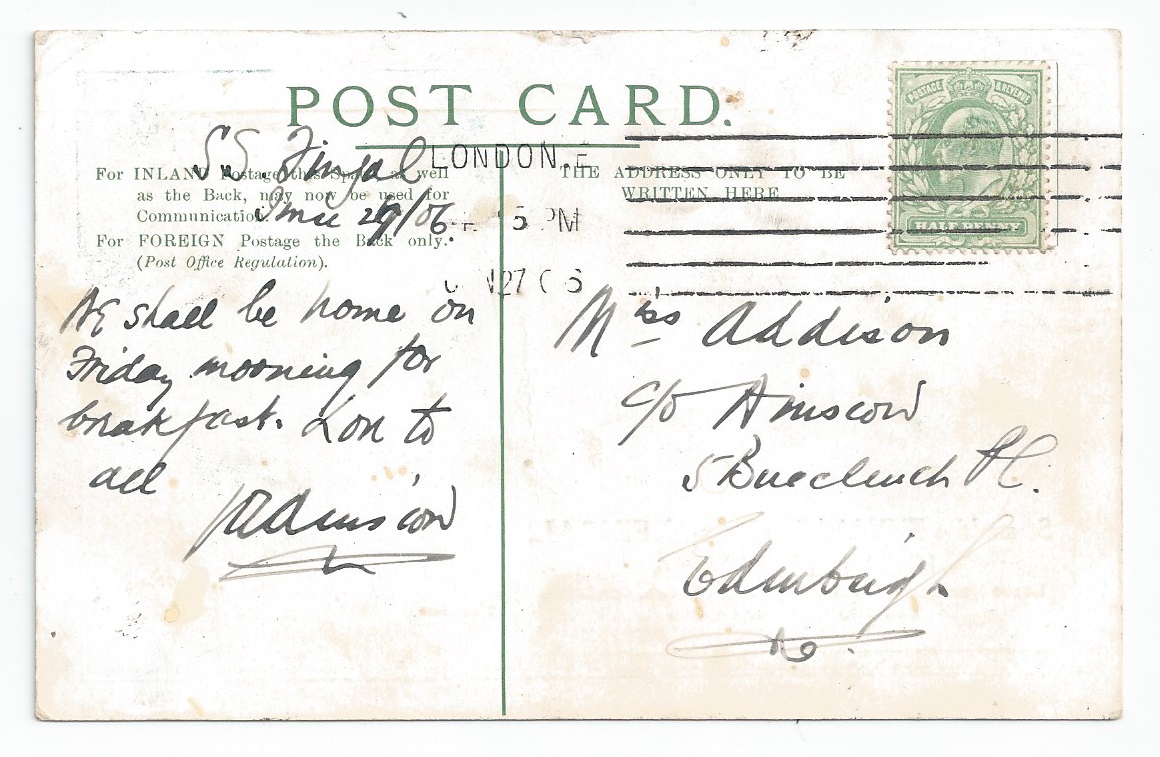 POST CARD.
S.S. Fingal
June 27/06
For INLAND Postage this Space as well
as the Back, may now be used for
Communication.
For FOREIGN Postage the Back only.
(Post Office Regulation).
We shall be home on
Friday morning for
breakfast. Lon to
all
LONDON.E
5 PM
N27 06
THE ADDRESS ONLY TO BE
WRITTEN HERE
POSTAGE & REVENUE
HALF PENNY
Miss Addison
c/o Ainscow
5 Buccleuch Pl.
Edinburgh